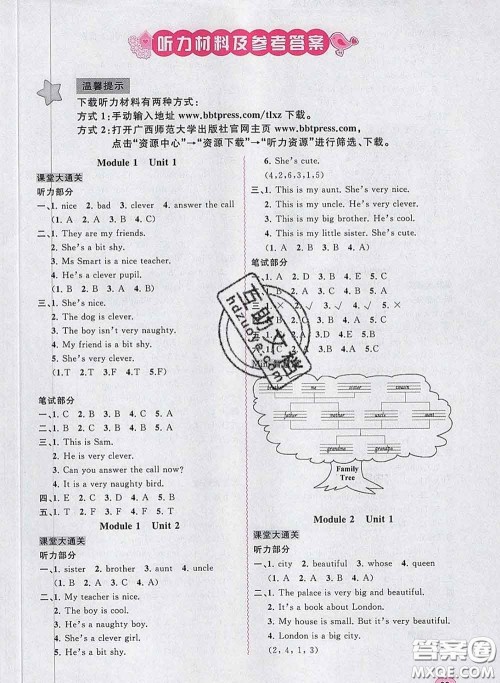 听力材料及参考答案
温馨提示
下载听力材料有两种方式：
方式 1：手动输入地址 www.bbtpress.com/tlxz 下载。
方式 2：打开广西师范大学出版社官网主页 www.bbtpress.com，
点击“资源中心”→“资源下载”→“听力资源”进行筛选、下载。
Module 1 Unit 1
课堂大通关
听力部分
一、1. nice 2. bad 3. clever 4. answer the call
(1. A 2. A 3. B 4. A)
二、1. They are my friends.
2. She's a bit shy.
3. Ms Smart is a nice teacher.
4. He's a clever pupil.
(1. B 2. A 3. B 4. A)
三、1. She's nice.
2. The dog is clever.
3. The boy isn't very naughty.
4. My friend is a bit shy.
5. She's very clever.
(1. T 2. F 3. T 4. T 5. F)
笔试部分
一、1. C 2. B 3. D 4. A
二、1. C 2. B 3. A 4. A 5. C
三、1. This is Sam.
2. He is very clever.
3. Can you answer the call now?
4. It is a very naughty bird.
四、1. E 2. A 3. B 4. C 5. D
五、1. F 2. T 3. F 4. F 5. T
Module 1 Unit 2
课堂大通关
听力部分
一、1. sister 2. brother 3. aunt 4. uncle
(1. A 2. B 3. B 4. A)
二、1. My teacher is nice.
2. The boy is cool.
3. He's a naughty boy.
4. She's a clever girl.
5. She's a bit shy.
6. She's cute.
(4,2,6,3,1,5)
三、1. This is my aunt. She's very nice.
2. This is my uncle. He's very clever.
3. This is my big brother. He's cool.
4. This is my little sister. She's cute.
(1. A 2. A 3. B 4. B)
笔试部分
一、1. A 2. D 3. B 4. E 5. C
3. B 4. A 5. C
4. √ 5. ×
五、1. C 2. A
father mother uncle aunt
grandma grandpa
Family
Tree
Module 2 Unit 1
课堂大通关
听力部分
一、1. city 2. beautiful 3. whose 4. queen
(1. B 2. B 3. A 4. A)
二、1. The palace is very big and beautiful.
2. It's a book about London.
3. My house is small. But it's very beautiful.
4. London is a big city.
(2, 4, 1, 3)
互助文档
hdzuoye.com
答案圈
MXQE.COM